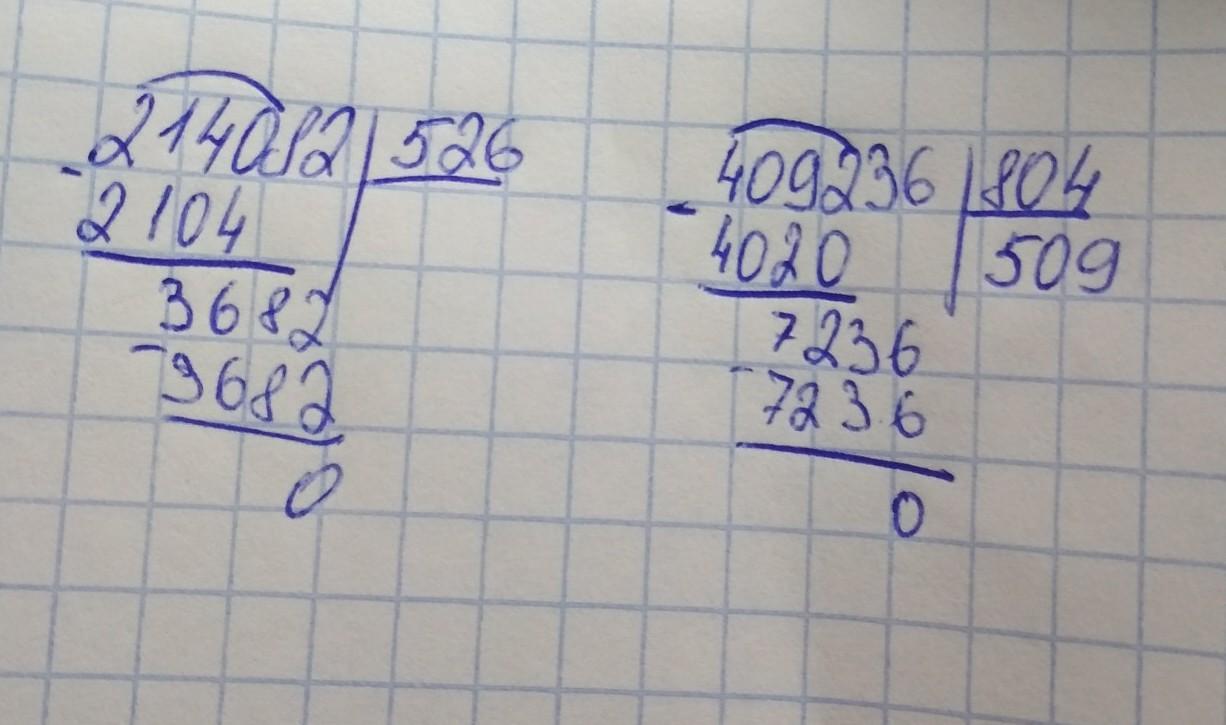 214082 526
- 2104
3682
- 3682
0
409236 804
- 4020 509
7236
- 7236
0